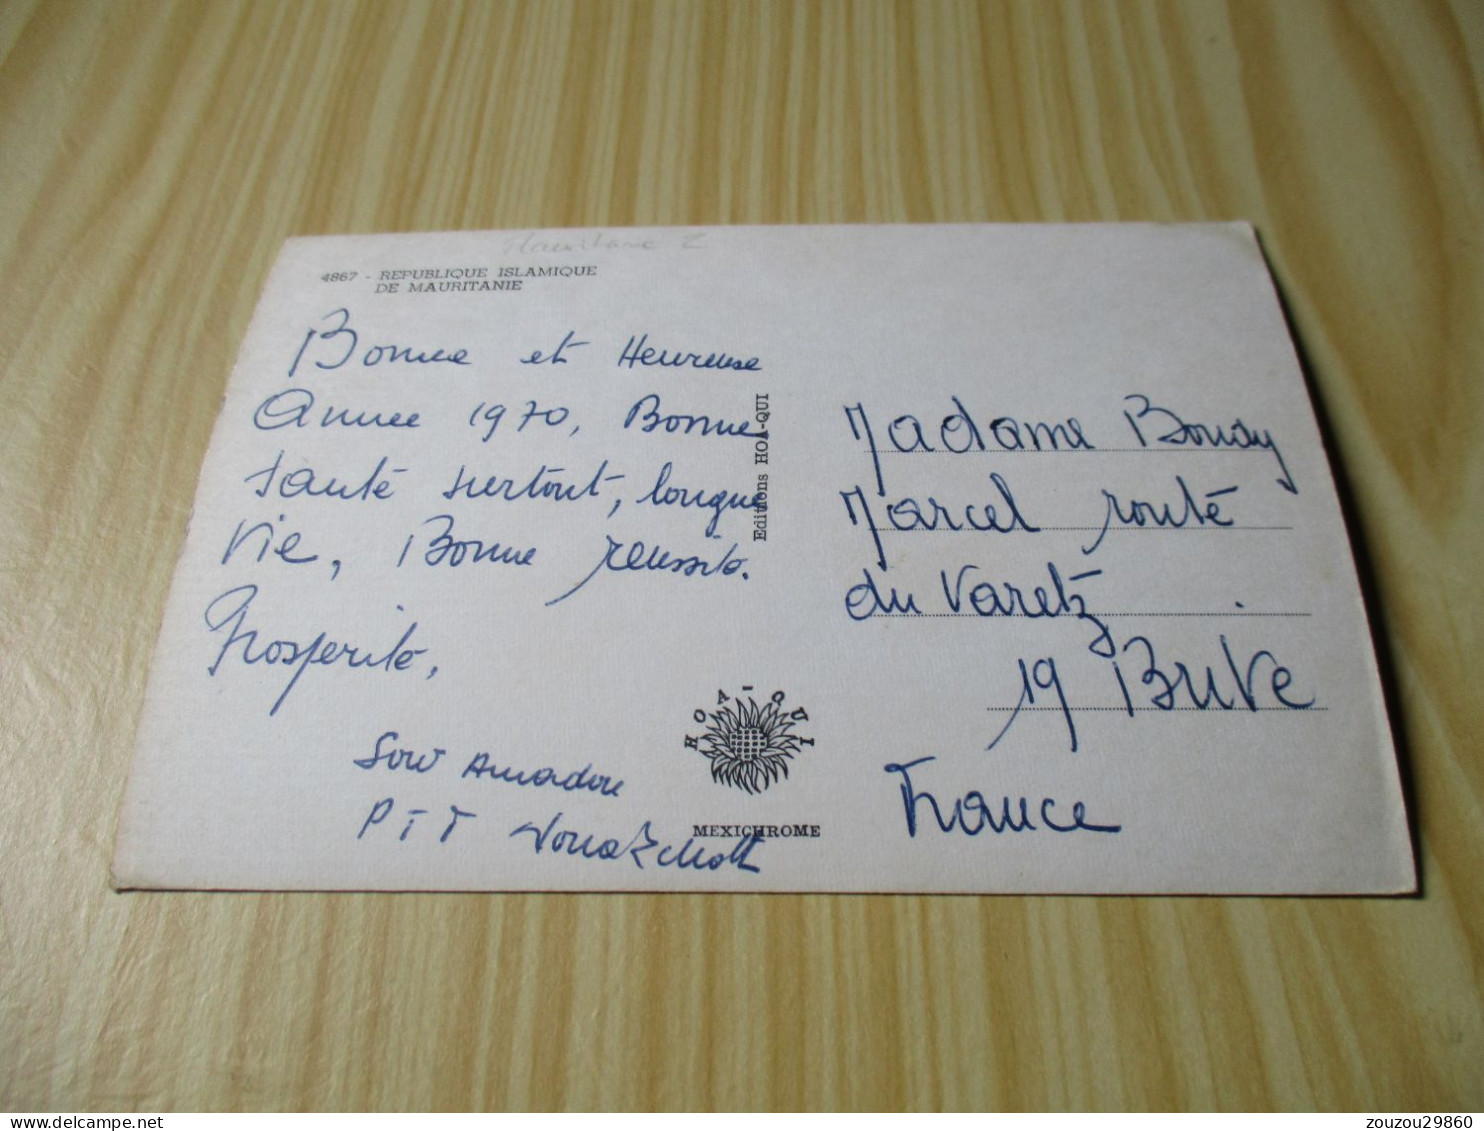 Mauritanie
4867 - REPUBLIQUE ISLAMIQUE
DE MAURITANIE
Bonne et Heureuse
Année 1970, Bonne
Santé surtout, longue
Vie, Bonne reussite.
Prosperité,
Sow Amadou
PTT Nouakchott
Editions HOA-QUI
HOA-QUI
MEXICHROME
Madame Bouay
Marcel route
du Varetz
19 Brive
France
zouzou29860